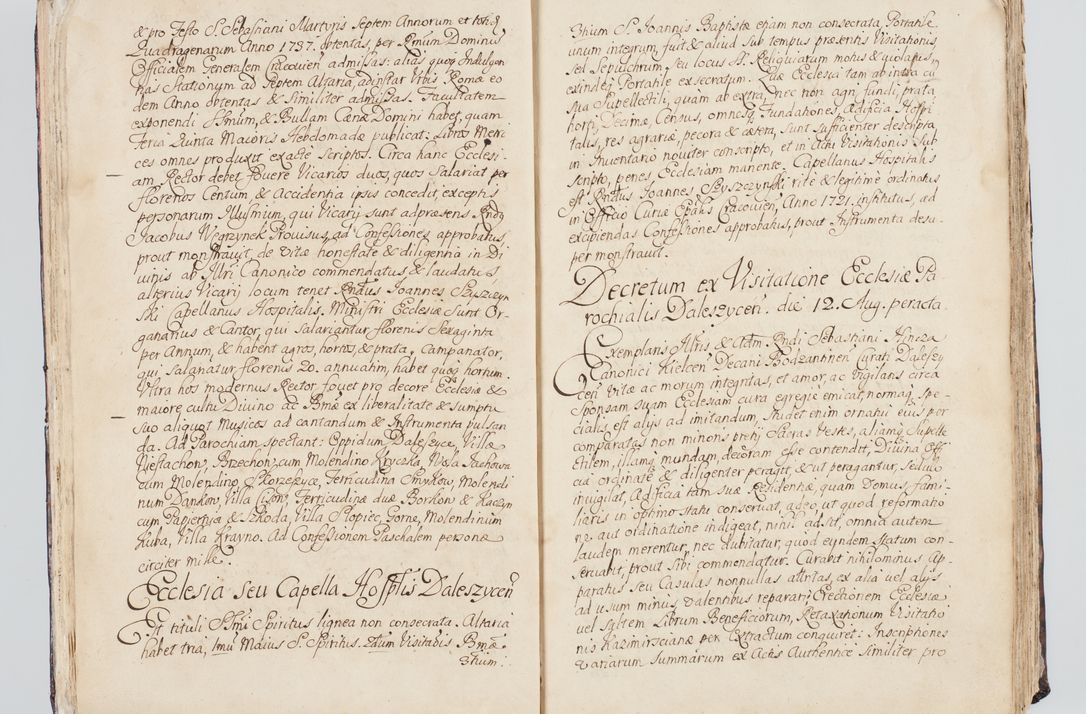 & pro Festo S. Sebastiani Martyris Septem Annorum et totid
Quadragenarum Anno 1737. obtentas, per Rmum Dominũ
Officialem Generalem Cracovien admissas: alias quoq Indulgen
tias Stationum ad Septem Altaria, ad instar Urbis Romæ eo
dem Anno obtentas & Similiter admissas. Facultatem
exponendi Smum, & Bullam Cœnæ Domini habet, quam
Feria Quinta Maioris Hebdomadæ publicat: Libros Metri
ces omnes produxit exacte scriptos. Circa hanc Ecclesi
am Rector debet fovere Vicarios duos, quos Salariat per
florenos Centum, & Accidentia ipsis concedit, exceptis
personarum Illustrium, qui Vicarij sunt adpræsens Rndg
Jacobus Węgrzynek Provisus, ad Confessiones approbatus,
prout monstravit, de vitæ honestate & diligentia in Di
vinis ab Illri Canonico commendatus, & laudatus
alterius Vicarij locum tenet Rndus Ioannes Szyszczyn
ski Capellanus Hospitalis. Ministri Ecclesiæ Sunt Or
ganarius & Cantor, qui salariantur florenis Sexaginta
per Annum, & habent agros, hortos, & prata, Campanator,
qui salariatur florenis 20. annuatim, habet quoq hortum.
Ultra hos modernus Rector fovet pro decore Ecclesiæ &
maiore cultu Divino ac Bmæ ex liberalitate & sumptu
suo aliquot Musicos ad cantandum & Instrumenta pulsan
da. Ad Parochiam spectant: Oppidum Daleszyce, Villæ
Niestachow, Brzechow, cum Molendino Kryczka Wola Jachowa
cum Molendino Skorzeszyce, Ferricudina Smykow, Molendi
num Dankow, Villa Cisow, Ferricudinæ duæ Borkow & Raczyn
cum Papiernia & Szkoda, Villa Stopiec, Gorne, Molendinum
Kuba, Villa Krayno. Ad Confessionem Paschalem personæ
circiter mille.
Ecclesia seu Capella Hosplis Daleszyceñ
Est tituli SSmi Spiritus lignea non consecrata. Altaria
habet tria, 1mu Maius S. Spiritus. 2dum Visitatis Bmæ.
3tium:
3tium S. Joannis Baptistæ etiam non consecrata. Portatile
unum integrum, fuit & aliud sub tempus præsentis Visitationis
sed Sepulchrum seu locus SS. Reliquiarum motus & violatus,
exindeq Portatile exsecratum. Quæ Ecclesia tam ab intra cũ
sua Supellectili, quam ab extra, nec non agri, fundi, prata
horti, Decimæ, Census, omnesq Fundationes, Ædificia Hospi
talis, res agrariæ, pecora & cætera, sunt sufficienter descripta
in Inventario noviter conscripto, et in Actu Visitationis sub
scripto, penes Ecclesiam manente. Capellanus Hospitalis
est Rndus Joannes Szyszczynski rite & legitime ordinatus
in Officio Curiæ Epalis Cracovien, Anno 1721. institutus, ad
excipiendas Confessiones approbatus, prout Instrumenta desu
per monstravit.
Decretum ex Visitatione Ecclesiæ Pa
rochialis Daleszyceñ. die 12. Aug. peracta.
Exemplaris Illris & Adm Rndi Sebastiani Hincza
Canonici Kielcen Decani Bodzantinen Curati Daleszy
cen vitæ ac morum integritas, et amor, ac vigilans circa
Sponsam suam Ecclesiam cura egregie emicat, normaq spe-
cialis est alijs ad imitandum, studet enim ornatui eius per
comparatas non minoris pretij Sacras Vestes, aliamq Supelle
ctilem, illamq mundam, decoram esse contendit, Divina Offi
cia ordinate & diligenter peragit, & ut peragantur, sedulo
invigilat, Ædificia tam suæ Residentiæ, quam Domus fami-
liaris in optimo statu conservat, adeo ut quod reformatio
ne aut ordinatione indigeat, nihil adsit, omnia autem
laudem merentur, nec dubitatur, quod eundem statum con-
servabit, prout sibi commendatur. Curabit nihilominus Ap-
paratus seu Casulas nonnullas attritas, ex alia vel alijs
ad usum minus valentibus reparari: Erectionem Ecclesiæ
vel saltem Librum Beneficiorum, Retaxationum Visitatio
nis Kazimirscianæ per Extractum conquiret: Inscriptiones
variarum summarum ex Actis Authentice similiter pro